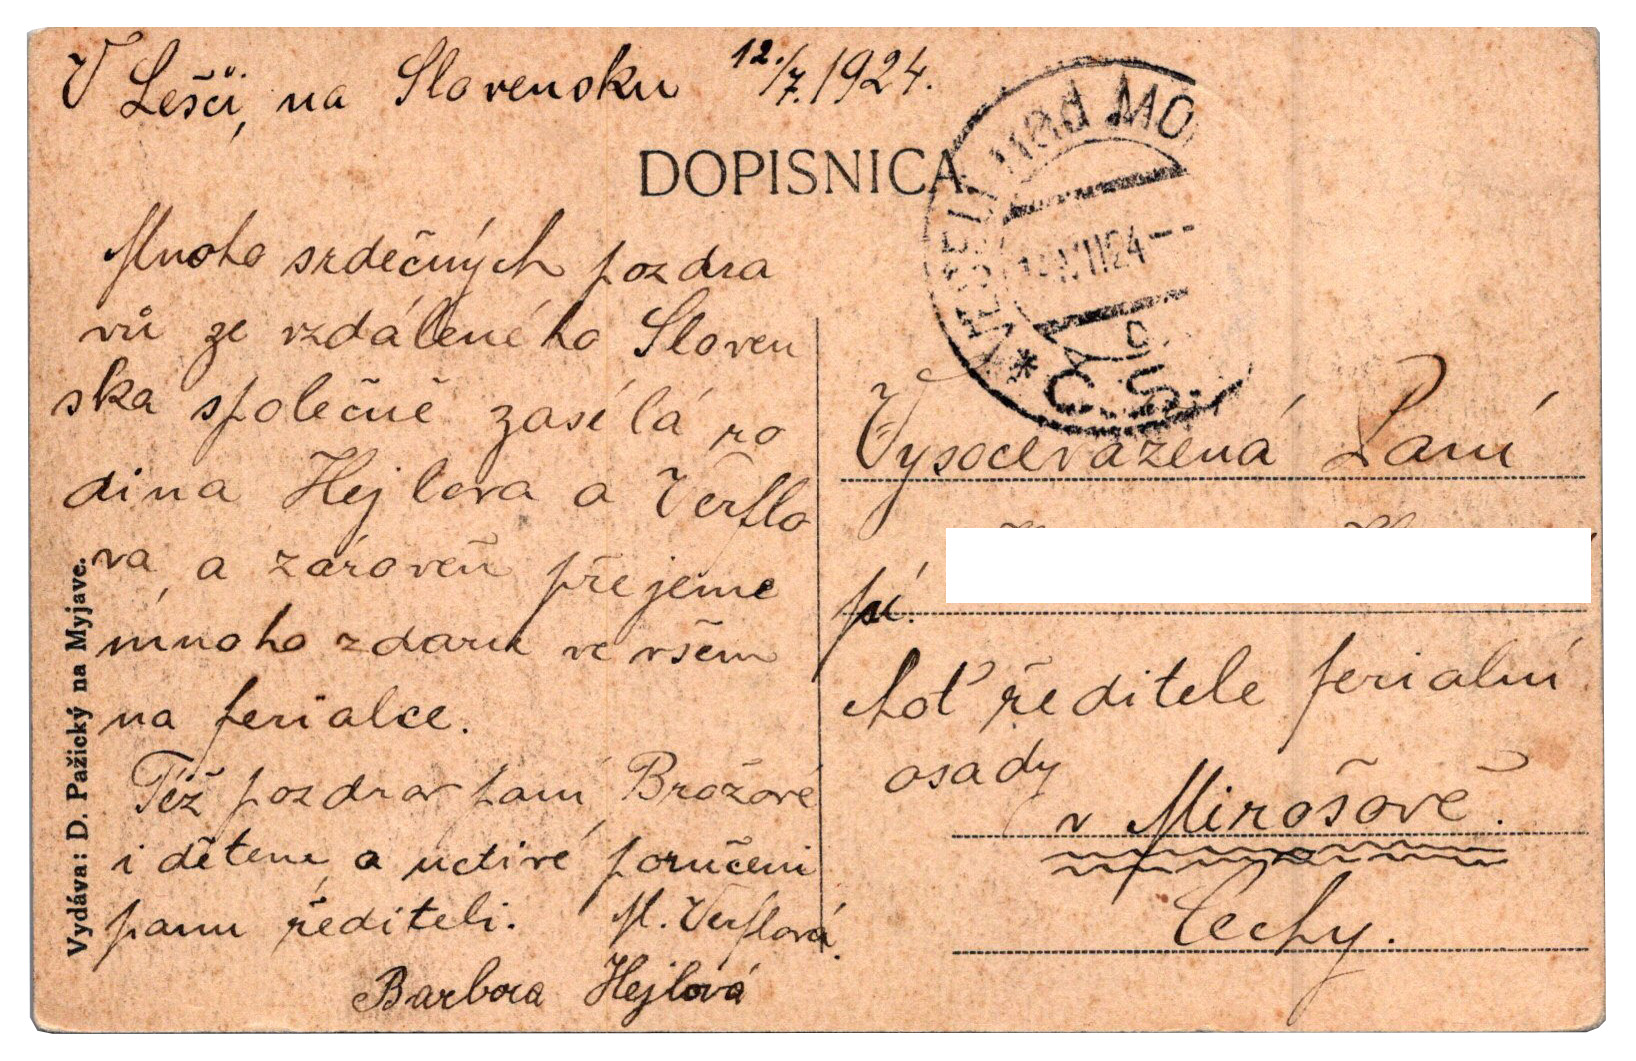 V Lešči, na Slovensku 12./7. 1924.
DOPISNICA
Mnoho srdečných pozdra
vů ze vzdáleného Sloven
ska společně zasílá ro
dina Hejlova a Verflo
va, a zároveň přejeme
mnoho zdaru ve všem
na ferialce.
Též pozdrav paní Brožové
i dětem, a uctivé poručení
panu řediteli. M. Verflová.
Barbora Hejlová
Vydáva: D. Pažický na Myjave.
VESELÍ NAD MOR
VII 24
ČSR
Vysocevážená Paní
pí.
choť ředitele ferialní
osady
v Mirošově.
Čechy.